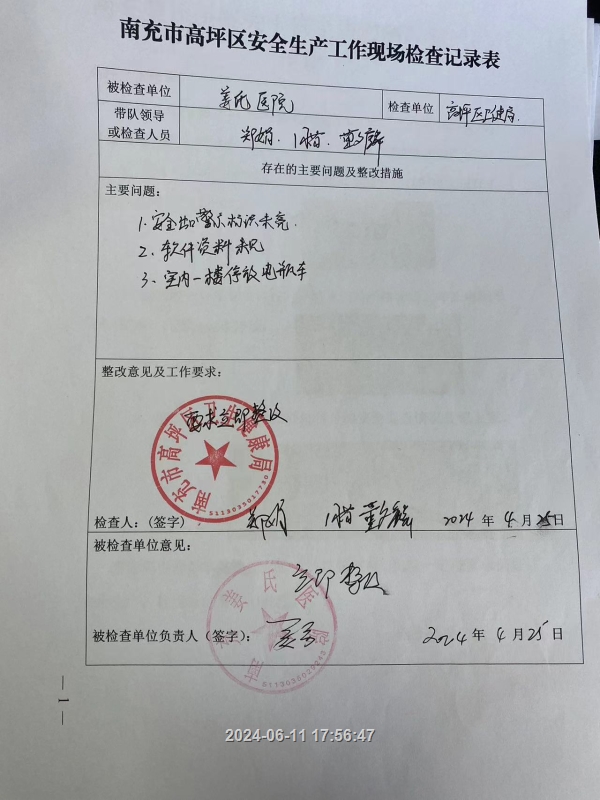 南充市高坪区安全生产工作现场检查记录表
被检查单位 姜氏医院 检查单位 高坪区卫健局
带队领导
或检查人员 郑娟
存在的主要问题及整改措施
主要问题:
1. 安全出口警示标识未亮
2. 软件资料未见
3. 室内一楼停放电瓶车
整改意见及工作要求:
要求立即整改
南充市高坪区卫生健康局
检查人:(签字) 郑娟 2024 年 4 月 25 日
被检查单位意见:
立即整改
姜氏医院
被检查单位负责人(签字): 2024 年 4 月 25 日
— 1 —
2024-06-11 17:56:47